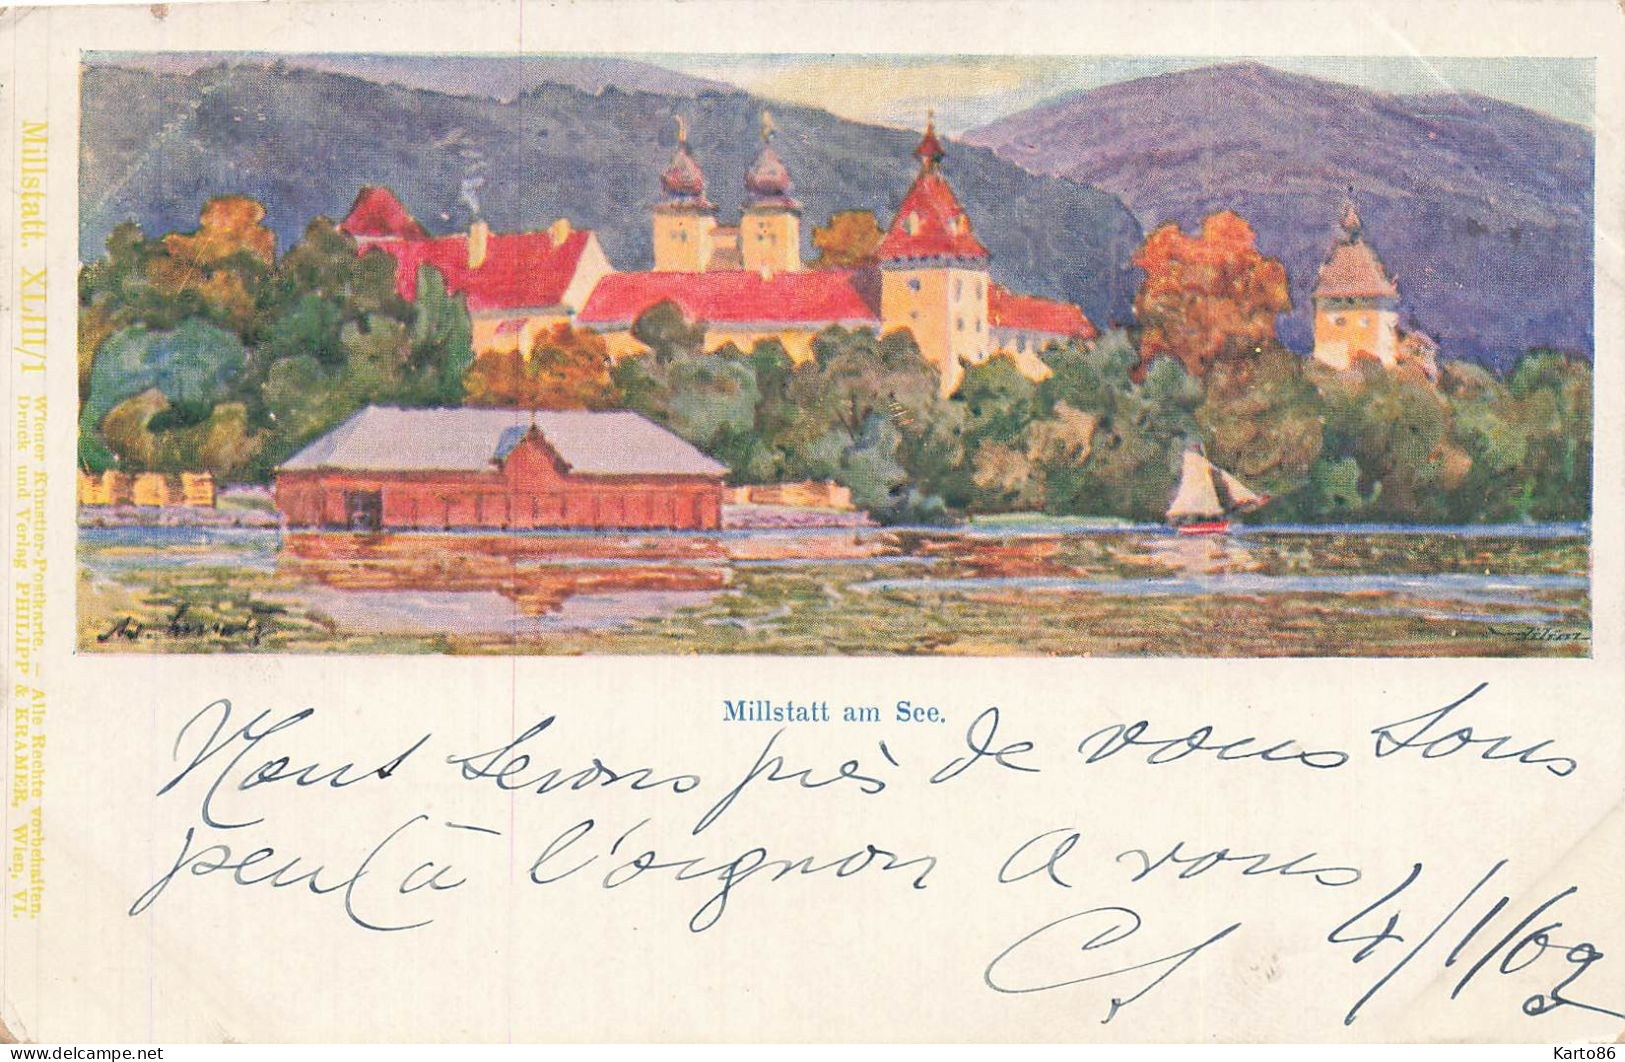 Millstatt. XLIII/1 Wiener Künstler-Postkarte. – Alle Rechte vorbehalten.
Druck und Verlag PHILIPP & KRAMER, Wien, VI.
Millstatt am See.
Nous serons près de vous sous
peu (à l'oignon a vous
4/1/02
delcampe.net
Karto86